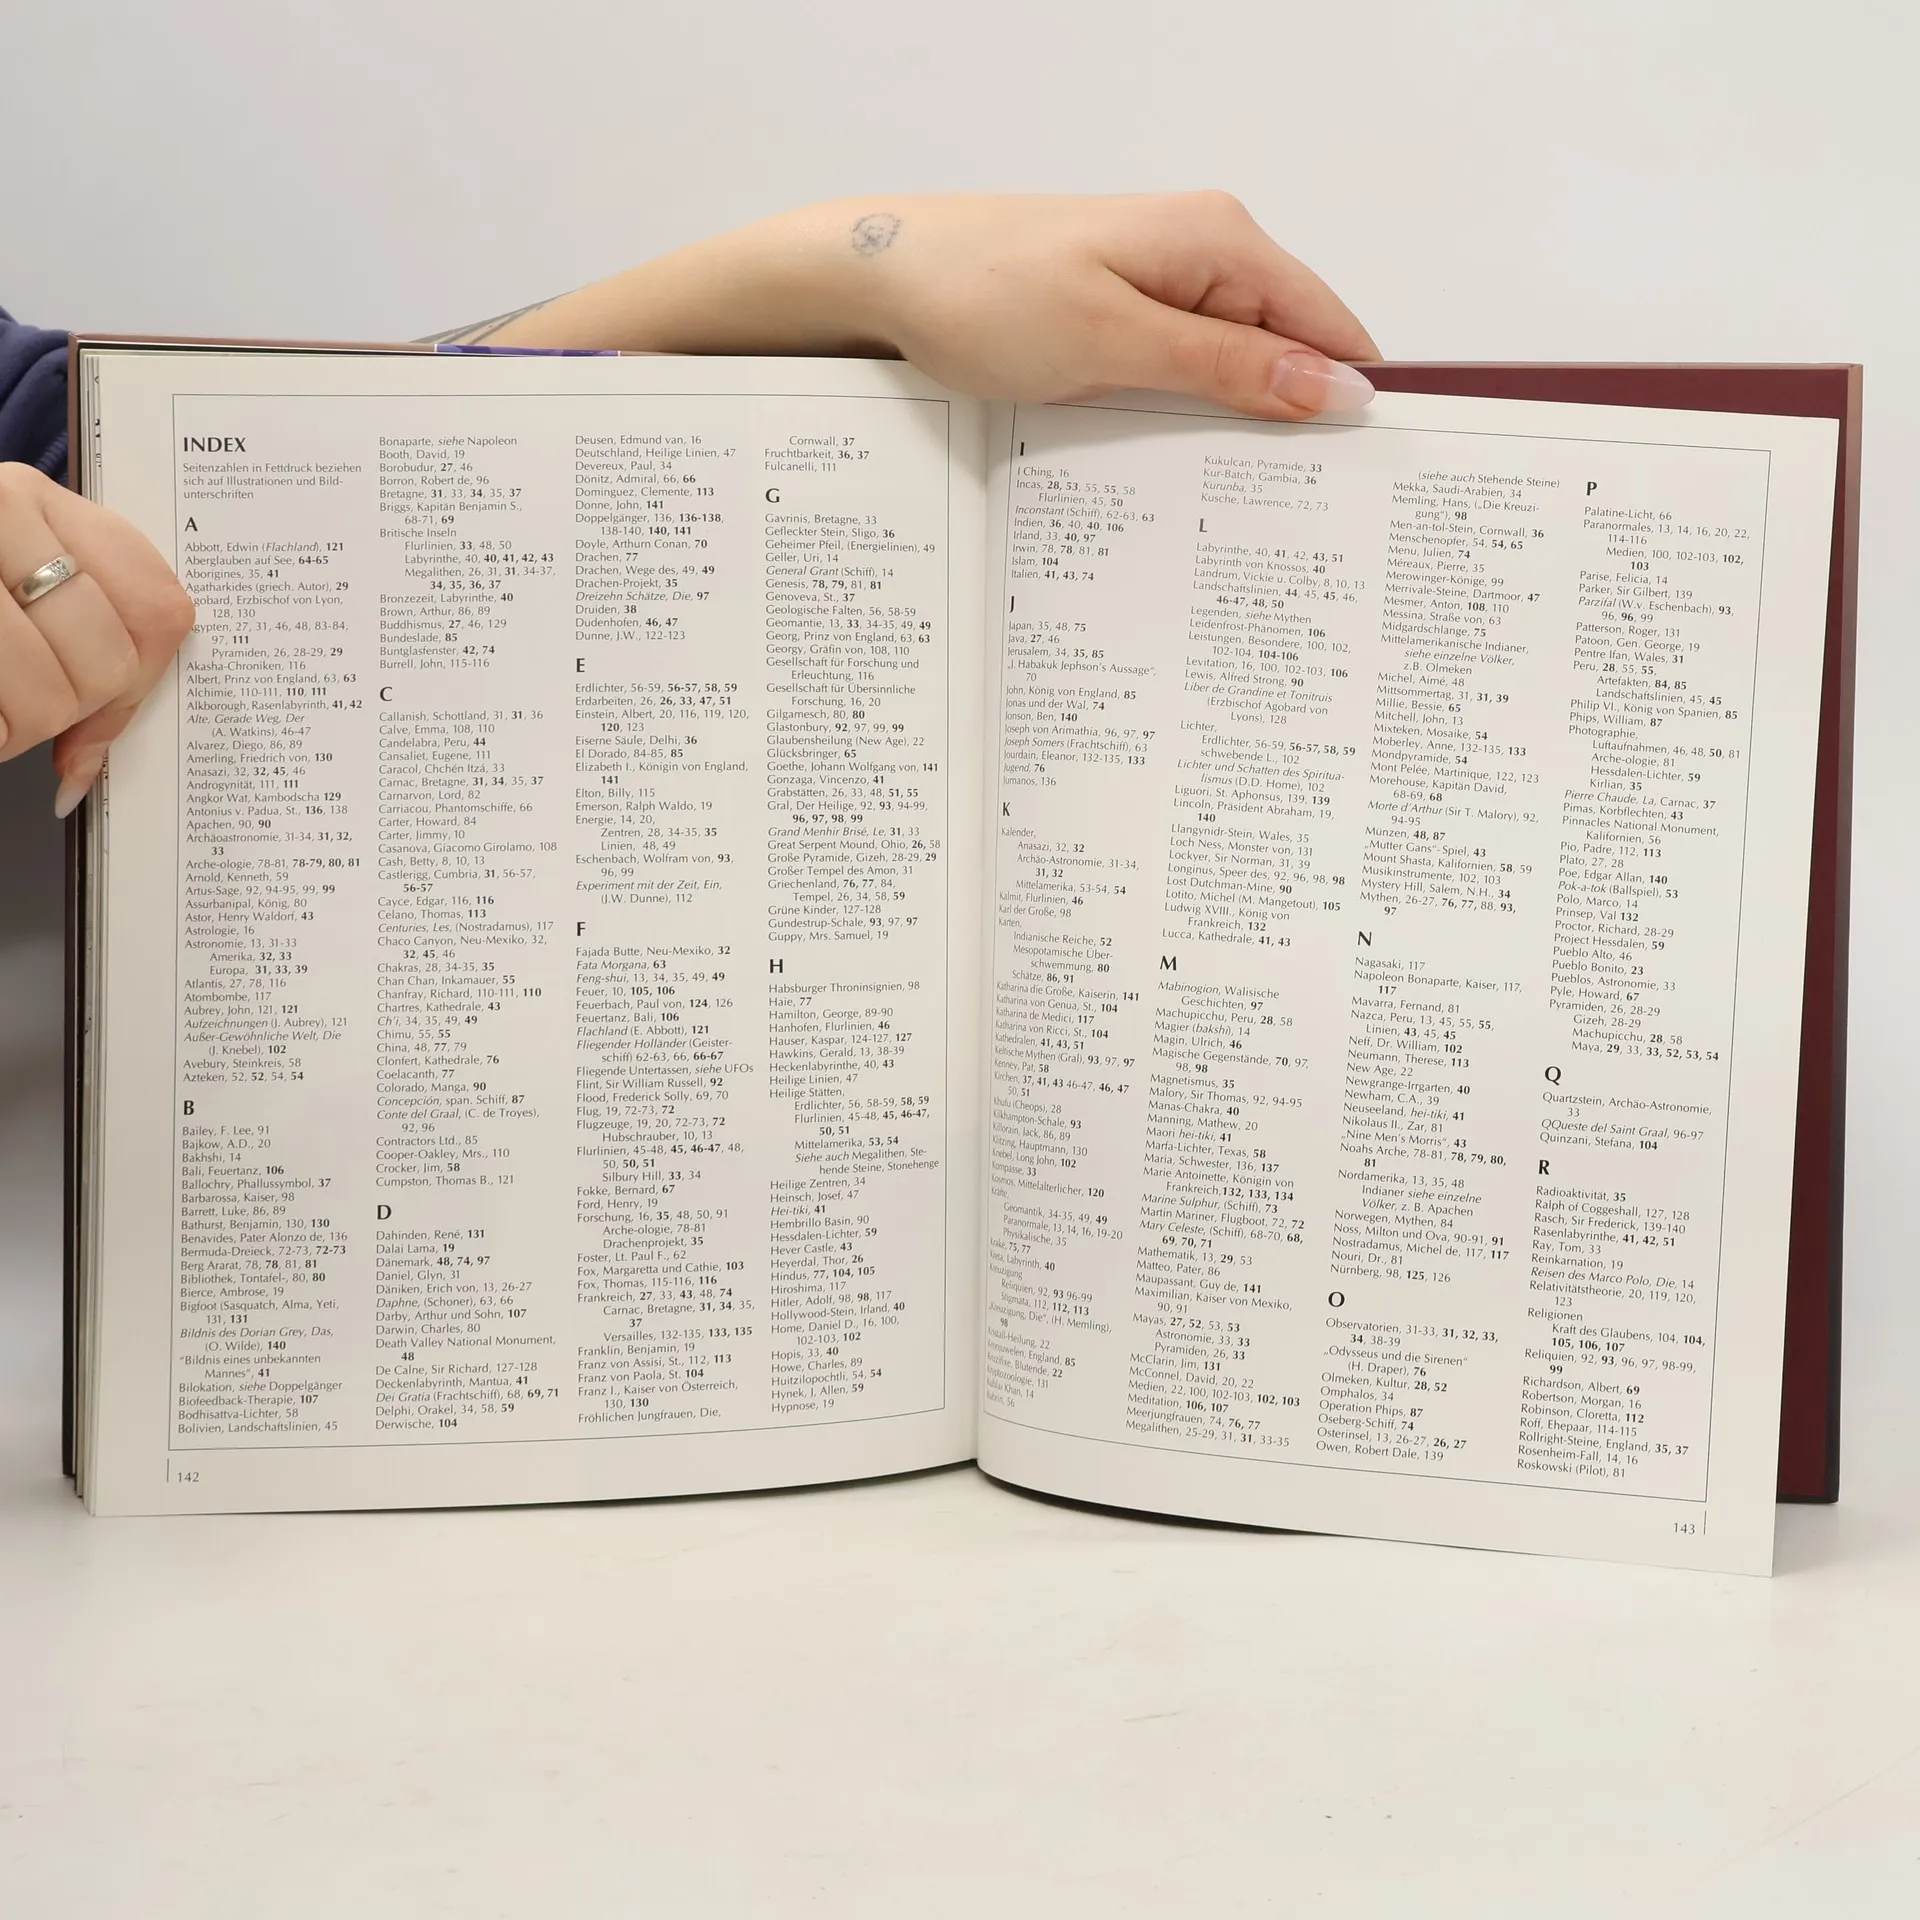 INDEX
Seitenzahlen in Fettdruck beziehen
sich auf Illustrationen und Bild-
unterschriften
A
Abbott, Edwin (Flachland), 121
Aberglauben auf See, 64-65
Aborigines, 35, 41
Agatharkides (griech. Autor), 29
Agobard, Erzbischof von Lyon,
128, 130
Ägypten, 27, 31, 46, 48, 83-84,
97, 111
Pyramiden, 26, 28-29, 29
Akasha-Chroniken, 116
Albert, Prinz von England, 63, 63
Alchimie, 110-111, 110, 111
Alkborough, Rasenlabyrinth, 41, 42
Alte, Gerade Weg, Der
(A. Watkins), 46-47
Alvarez, Diego, 86, 89
Amerling, Friedrich von, 130
Anasazi, 32, 32, 45, 46
Androgynität, 111, 111
Angkor Wat, Kambodscha 129
Antonius v. Padua, St., 136, 138
Apachen, 90, 90
Archäoastronomie, 31-34, 31, 32,
33
Arche-ologie, 78-81, 78-79, 80, 81
Arnold, Kenneth, 59
Artus-Sage, 92, 94-95, 99, 99
Assurbanipal, König, 80
Astor, Henry Waldorf, 43
Astrologie, 16
Astronomie, 13, 31-33
Amerika, 32, 33
Europa, 31, 33, 39
Atlantis, 27, 78, 116
Atombombe, 117
Aubrey, John, 121, 121
Aufzeichnungen (J. Aubrey), 121
Außer-Gewöhnliche Welt, Die
(J. Knebel), 102
Avebury, Steinkreis, 58
Azteken, 52, 52, 54, 54
B
Bailey, F. Lee, 91
Bajkow, A.D., 20
Bakhshi, 14
Bali, Feuertanz, 106
Ballochry, Phallussymbol, 37
Barbarossa, Kaiser, 98
Barrett, Luke, 86, 89
Bathurst, Benjamin, 130, 130
Benavides, Pater Alonzo de, 136
Bermuda-Dreieck, 72-73, 72-73
Berg Ararat, 78, 78, 81, 81
Bibliothek, Tontafel-, 80, 80
Bierce, Ambrose, 19
Bigfoot (Sasquatch, Alma, Yeti,
131, 131
Bildnis des Dorian Grey, Das,
(O. Wilde), 140
"Bildnis eines unbekannten
Mannes", 41
Bilokation, siehe Doppelgänger
Biofeedback-Therapie, 107
Bodhisattva-Lichter, 58
Bolivien, Landschaftslinien, 45
Bonaparte, siehe Napoleon
Booth, David, 19
Borobudur, 27, 46
Borron, Robert de, 96
Bretagne, 31, 33, 34, 35, 37
Briggs, Kapitän Benjamin S.,
68-71, 69
Britische Inseln
Flurlinien, 33, 48, 50
Labyrinthe, 40, 40, 41, 42, 43
Megalithen, 26, 31, 31, 34-37,
34, 35, 36, 37
Bronzezeit, Labyrinthe, 40
Brown, Arthur, 86, 89
Buddhismus, 27, 46, 129
Bundeslade, 85
Buntglasfenster, 42, 74
Burrell, John, 115-116
C
Callanish, Schottland, 31, 31, 36
Calve, Emma, 108, 110
Candelabra, Peru, 44
Cansaliet, Eugene, 111
Caracol, Chchén Itzá, 33
Carnac, Bretagne, 31, 34, 35, 37
Carnarvon, Lord, 82
Carriacou, Phantomschiffe, 66
Carter, Howard, 84
Carter, Jimmy, 10
Casanova, Giacomo Girolamo, 108
Cash, Betty, 8, 10, 13
Castlerigg, Cumbria, 31, 56-57,
56-57
Cayce, Edgar, 116, 116
Celano, Thomas, 113
Centuries, Les, (Nostradamus), 117
Chaco Canyon, Neu-Mexiko, 32,
32, 45, 46
Chakras, 28, 34-35, 35
Chan Chan, Inkamauer, 55
Chanfray, Richard, 110-111, 110
Chartres, Kathedrale, 43
Ch'i, 34, 35, 49, 49
Chimu, 55, 55
China, 48, 77, 79
Clonfert, Kathedrale, 76
Coelacanth, 77
Colorado, Manga, 90
Concepción, span. Schiff, 87
Conte del Graal, (C. de Troyes),
92, 96
Contractors Ltd., 85
Cooper-Oakley, Mrs., 110
Crocker, Jim, 58
Cumpston, Thomas B., 121
D
Dahinden, René, 131
Dalai Lama, 19
Dänemark, 48, 74, 97
Daniel, Glyn, 31
Däniken, Erich von, 13, 26-27
Daphne, (Schoner), 63, 66
Darby, Arthur und Sohn, 107
Darwin, Charles, 80
Death Valley National Monument,
48
De Calne, Sir Richard, 127-128
Deckenlabyrinth, Mantua, 41
Dei Gratia (Frachtschiff), 68, 69, 71
Delphi, Orakel, 34, 58, 59
Derwische, 104
Deusen, Edmund van, 16
Deutschland, Heilige Linien, 47
Devereux, Paul, 34
Dönitz, Admiral, 66, 66
Dominguez, Clemente, 113
Donne, John, 141
Doppelgänger, 136, 136-138,
138-140, 140, 141
Doyle, Arthurn Conan, 70
Drachen, 77
Drachen, Wege des, 49, 49
Drachen-Projekt, 35
Dreizehn Schätze, Die, 97
Druiden, 38
Dudenhofen, 46, 47
Dunne, J.W., 122-123
E
Erdlichter, 56-59, 56-57, 58, 59
Erdarbeiten, 26, 26, 33, 47, 51
Einstein, Albert, 20, 116, 119, 120,
120, 123
Eiserne Säule, Delhi, 36
El Dorado, 84-85, 85
Elizabeth I., Königin von England,
141
Elton, Billy, 115
Emerson, Ralph Waldo, 19
Energie, 14, 20,
Zentren, 28, 34-35, 35
Linien, 48, 49
Eschenbach, Wolfram von, 93,
96, 99
Experiment mit der Zeit, Ein,
(J.W. Dunne), 112
F
Fajada Butte, Neu-Mexiko, 32
Fata Morgana, 63
Feng-shui, 13, 34, 35, 49, 49
Feuer, 10, 105, 106
Feuerbach, Paul von, 124, 126
Feuertanz, Bali, 106
Flachland (E. Abbott), 121
Fliegender Holländer (Geister-
schiff) 62-63, 66, 66-67
Fliegende Untertassen, siehe UFOs
Flint, Sir William Russell, 92
Flood, Frederick Solly, 69, 70
Flug, 19, 72-73, 72
Flugzeuge, 19, 20, 72-73, 72
Hubschrauber, 10, 13
Flurlinien, 45-48, 45, 46-47, 48,
50, 50, 51
Silbury Hill, 33, 34
Fokke, Bernard, 67
Ford, Henry, 19
Forschung, 16, 35, 48, 50, 91
Arche-ologie, 78-81
Drachenprojekt, 35
Foster, Lt. Paul F., 62
Fox, Margaretta und Cathie, 103
Fox, Thomas, 115-116, 116
Frankreich, 27, 33, 43, 48, 74
Carnac, Bretagne, 31, 34, 35,
37
Versailles, 132-135, 133, 135
Franklin, Benjamin, 19
Franz von Assisi, St., 112, 113
Franz von Paola, St. 104
Franz I., Kaiser von Österreich,
130, 130
Fröhlichen Jungfrauen, Die,
Cornwall, 37
Fruchtbarkeit, 36, 37
Fulcanelli, 111
G
Gavrinis, Bretagne, 33
Gefleckter Stein, Sligo, 36
Geheimer Pfeil, (Energielinien), 49
Geller, Uri, 14
General Grant (Schiff), 14
Genesis, 78, 79, 81, 81
Genoveva, St., 37
Geologische Falten, 56, 58-59
Geomantie, 13, 33, 34-35, 49, 49
Georg, Prinz von England, 63, 63
Georgy, Gräfin von, 108, 110
Gesellschaft für Forschung und
Erleuchtung, 116
Gesellschaft für Übersinnliche
Forschung, 16, 20
Gilgamesch, 80, 80
Glastonbury, 92, 97, 99, 99
Glaubensheilung (New Age), 22
Glücksbringer, 65
Goethe, Johann Wolfgang von, 141
Gonzaga, Vincenzo, 41
Grabstätten, 26, 33, 48, 51, 55
Gral, Der Heilige, 92, 93, 94-99,
96, 97, 98, 99
Grand Menhir Brisé, Le, 31, 33
Great Serpent Mound, Ohio, 26, 58
Große Pyramide, Gizeh, 28-29, 29
Großer Tempel des Amon, 31
Griechenland, 76, 77, 84,
Tempel, 26, 34, 58, 59
Grüne Kinder, 127-128
Gundestrup-Schale, 93, 97, 97
Guppy, Mrs. Samuel, 19
H
Habsburger Throninsignien, 98
Haie, 77
Hamilton, George, 89-90
Hanhofen, Flurlinien, 46
Hauser, Kaspar, 124-127, 127
Hawkins, Gerald, 13, 38-39
Heckenlabyrinthe, 40, 43
Heilige Linien, 47
Heilige Stätten,
Erdlichter, 56, 58-59, 58, 59
Flurlinien, 45-48, 45, 46-47,
50, 51
Mittelamerika, 53, 54
Siehe auch Megalithen, Ste-
hende Steine, Stonehenge
Heilige Zentren, 34
Heinsch, Josef, 47
Hei-tiki, 41
Hembrillo Basin, 90
Hessdalen-Lichter, 59
Hever Castle, 43
Heyerdal, Thor, 26
Hindus, 77, 104, 105
Hiroshima, 117
Hitler, Adolf, 98, 98, 117
Hollywood-Stein, Irland, 40
Home, Daniel D., 16, 100,
102-103, 102
Hopis, 33, 40
Howe, Charles, 89
Huitzilopochtli, 54, 54
Hynek, J. Allen, 59
Hypnose, 19
142
I
I Ching, 16
Incas, 28, 53, 55, 55, 58
Flurlinien, 45, 50
Inconstant (Schiff), 62-63, 63
Indien, 36, 40, 40, 106
Irland, 33, 40, 97
Irwin, 78, 78, 81, 81
Islam, 104
Italien, 41, 43, 74
J
Japan, 35, 48, 75
Java, 27, 46
Jerusalem, 34, 35, 85
„J. Habakuk Jephson's Aussage",
70
John, König von England, 85
Jonas und der Wal, 74
Jonson, Ben, 140
Joseph von Arimathia, 96, 97, 97
Joseph Somers (Frachtschiff), 63
Jourdain, Eleanor, 132-135, 133
Jugend, 76
Jumanos, 136
K
Kalender,
Anasazi, 32, 32
Archäo-Astronomie, 31-34,
31, 32
Mittelamerika, 53-54, 54
Kalmit, Flurlinien, 46
Karl der Große, 98
Karten,
Indianische Reiche, 52
Mesopotamische Über-
schwemmung, 80
Schätze, 86, 91
Katharina die Große, Kaiserin, 141
Katharina von Genua, St., 104
Katharina de Medici, 117
Katharina von Ricci, St., 104
Kathedralen, 41, 43, 51
Keltische Mythen (Gral), 93, 97, 97
Kenney, Pat, 58
Kirchen, 37, 41, 43 46-47, 46, 47
50, 51
Khufu (Cheops), 28
Kilkhampton-Schale, 93
Killorain, Jack, 86, 89
Klitzing, Hauptmann, 130
Knebel, Long John, 102
Kompasse, 33
Kosmos, Mittelalterlicher, 120
Kräfte,
Geomantik, 34-35, 49, 49
Paranormale, 13, 14, 16, 19-20
Physikalische, 35
Krake, 75, 77
Kreta, Labyrinth, 40
Kreuzigung
Reliquien, 92, 93 96-99
Stigmata, 112, 112, 113
„Kreuzigung, Die", (H. Memling),
98
Kristall-Heilung, 22
Kronjuwelen, England, 85
Kruzifixe, Blutende, 22
Kryptozoologie, 131
Kublai Khan, 14
Kukulcan, Pyramide, 33
Kur-Batch, Gambia, 36
Kurunba, 35
Kusche, Lawrence, 72, 73
L
Labyrinthe, 40, 41, 42, 43, 51
Labyrinth von Knossos, 40
Landrum, Vickie u. Colby, 8, 10, 13
Landschaftslinien, 44, 45, 45, 46,
46-47, 48, 50
Legenden, siehe Mythen
Leidenfrost-Phänomen, 106
Leistungen, Besondere, 100, 102,
102-104, 104-106
Levitation, 16, 100, 102-103, 106
Lewis, Alfred Strong, 90
Liber de Grandine et Tonitruis
(Erzbischof Agobard von
Lyons), 128
Lichter,
Erdlichter, 56-59, 56-57, 58, 59
schwebende L., 102
Lichter und Schatten des Spiritua-
lismus (D.D. Home), 102
Liguori, St. Aphonsus, 139, 139
Lincoln, Präsident Abraham, 19,
140
Llangynidr-Stein, Wales, 35
Loch Ness, Monster von, 131
Lockyer, Sir Norman, 31, 39
Longinus, Speer des, 92, 96, 98, 98
Lost Dutchman-Mine, 90
Lotito, Michel (M. Mangetout), 105
Ludwig XVIII., König von
Frankreich, 132
Lucca, Kathedrale, 41, 43
M
Mabinogion, Walisische
Geschichten, 97
Machupicchu, Peru, 28, 58
Magier (bakshi), 14
Magin, Ulrich, 46
Magische Gegenstände, 70, 97,
98, 98
Magnetismus, 35
Malory, Sir Thomas, 92, 94-95
Manas-Chakra, 40
Manning, Mathew, 20
Maori hei-tiki, 41
Marfa-Lichter, Texas, 58
Maria, Schwester, 136, 137
Marie Antoinette, Königin von
Frankreich,132, 133, 134
Marine Sulphur, (Schiff), 73
Martin Mariner, Flugboot, 72, 72
Mary Celeste, (Schiff), 68-70, 68,
69, 70, 71
Mathematik, 13, 29, 53
Matteo, Pater, 86
Maupassant, Guy de, 141
Maximilian, Kaiser von Mexiko,
90, 91
Mayas, 27, 52, 53, 53
Astronomie, 33, 33
Pyramiden, 26, 33
McClarin, Jim, 131
McConnel, David, 20, 22
Medien, 22, 100, 102-103, 102, 103
Meditation, 106, 107
Meerjungfrauen, 74, 76, 77
Megalithen, 25-29, 31, 31, 33-35
(siehe auch Stehende Steine)
Mekka, Saudi-Arabien, 34
Memling, Hans, („Die Kreuzi-
gung"), 98
Men-an-tol-Stein, Cornwall, 36
Menschenopfer, 54, 54, 65
Menu, Julien, 74
Méreaux, Pierre, 35
Merowinger-Könige, 99
Merrivale-Steine, Dartmoor, 47
Mesmer, Anton, 108, 110
Messina, Straße von, 63
Midgardschlange, 75
Mittelamerikanische Indianer,
siehe einzelne Völker,
z.B. Olmeken
Michel, Aimé, 48
Mittsommertag, 31, 31, 39
Millie, Bessie, 65
Mitchell, John, 13
Mixteken, Mosaike, 54
Moberley, Anne, 132-135, 133
Mondpyramide, 54
Mont Pelée, Martinique, 122, 123
Morehouse, Kapitän David,
68-69, 68
Morte d'Arthur (Sir T. Malory), 92,
94-95
Münzen, 48, 87
„Mutter Gans"-Spiel, 43
Mount Shasta, Kalifornien, 58, 59
Musikinstrumente, 102, 103
Mystery Hill, Salem, N.H., 34
Mythen, 26-27, 76, 77, 88, 93,
97
N
Nagasaki, 117
Napoleon Bonaparte, Kaiser, 117,
117
Mavarra, Fernand, 81
Nazca, Peru, 13, 45, 55, 55,
Linien, 43, 45, 45
Neff, Dr. William, 102
Neumann, Therese, 113
New Age, 22
Newgrange-Irrgarten, 40
Newham, C.A., 39
Neuseeland, hei-tiki, 41
Nikolaus II., Zar, 81
„Nine Men's Morris", 43
Noahs Arche, 78-81, 78, 79, 80,
81
Nordamerika, 13, 35, 48
Indianer siehe einzelne
Völker, z. B. Apachen
Norwegen, Mythen, 84
Noss, Milton und Ova, 90-91, 91
Nostradamus, Michel de, 117, 117
Nouri, Dr., 81
Nürnberg, 98, 125, 126
O
Observatorien, 31-33, 31, 32, 33,
34, 38-39
„Odysseus und die Sirenen"
(H. Draper), 76
Olmeken, Kultur, 28, 52
Omphalos, 34
Operation Phips, 87
Oseberg-Schiff, 74
Osterinsel, 13, 26-27, 26, 27
Owen, Robert Dale, 139
P
Palatine-Licht, 66
Paranormales, 13, 14, 16, 20, 22,
114-116
Medien, 100, 102-103, 102,
103
Parise, Felicia, 14
Parker, Sir Gilbert, 139
Parzifal (W.v. Eschenbach), 93,
96, 96, 99
Patterson, Roger, 131
Patoon, Gen. George, 19
Pentre Ifan, Wales, 31
Peru, 28, 55, 55,
Artefakten, 84, 85
Landschaftslinien, 45, 45
Philip VI., König von Spanien, 85
Phips, William, 87
Photographie,
Luftaufnahmen, 46, 48, 50, 81
Arche-ologie, 81
Hessdalen-Lichter, 59
Kirlian, 35
Pierre Chaude, La, Carnac, 37
Pimas, Korbflechten, 43
Pinnacles National Monument,
Kalifornien, 56
Pio, Padre, 112, 113
Plato, 27, 28
Poe, Edgar Allan, 140
Pok-a-tok (Ballspiel), 53
Polo, Marco, 14
Prinsep, Val 132
Proctor, Richard, 28-29
Project Hessdalen, 59
Pueblo Alto, 46
Pueblo Bonito, 23
Pueblos, Astronomie, 33
Pyle, Howard, 67
Pyramiden, 26, 28-29
Gizeh, 28-29
Machupicchu, 28, 58
Maya, 29, 33, 33, 52, 53, 54
Q
Quartzstein, Archäo-Astronomie,
33
QQueste del Saint Graal, 96-97
Quinzani, Stefana, 104
R
Radioaktivität, 35
Ralph of Coggeshall, 127, 128
Rasch, Sir Frederick, 139-140
Rasenlabyrinthe, 41, 42, 51
Ray, Tom, 33
Reinkarnation, 19
Reisen des Marco Polo, Die, 14
Relativitätstheorie, 20, 119, 120,
123
Religionen
Kraft des Glaubens, 104, 104,
105, 106, 107
Reliquien, 92, 93, 96, 97, 98-99,
99
Richardson, Albert, 69
Robertson, Morgan, 16
Robinson, Cloretta, 112
Roff, Ehepaar, 114-115
Rollright-Steine, England, 35, 37
Rosenheim-Fall, 14, 16
Roskowski (Pilot), 81
143